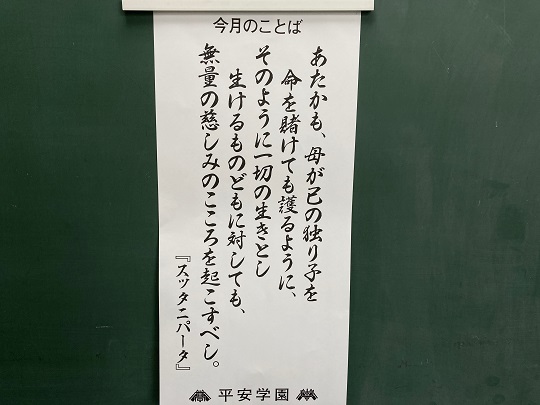 今月のことば
あたかも、母が已の独り子を
命を賭けても護るように、
そのように一切の生きとし
生けるものどもに対しても、
無量の慈しみのこころを起こすべし。
『スッタニパータ』
平安学園